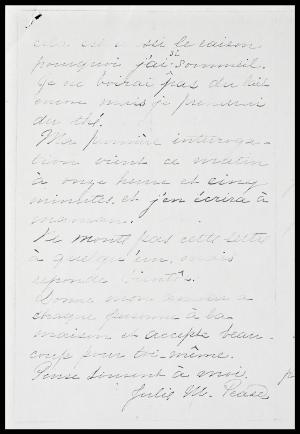 cela est la raison
pourquoi j'ai si sommeil.
Je ne boirai pas du lait
encore mais je prendrai
du thé.
Ma première interroga-
tion vient ce matin
à onze heure et cinq
minutes, et j'en écrirai à
maman.
Ne monte pas cette lettre
à quelqu'un, mais
reponde bientôt.
Donne mon amour a
chaque personne à la
maison et accepte beau-
coup pour toi-même.
Pense souvent à moi.
Julie M. Pease